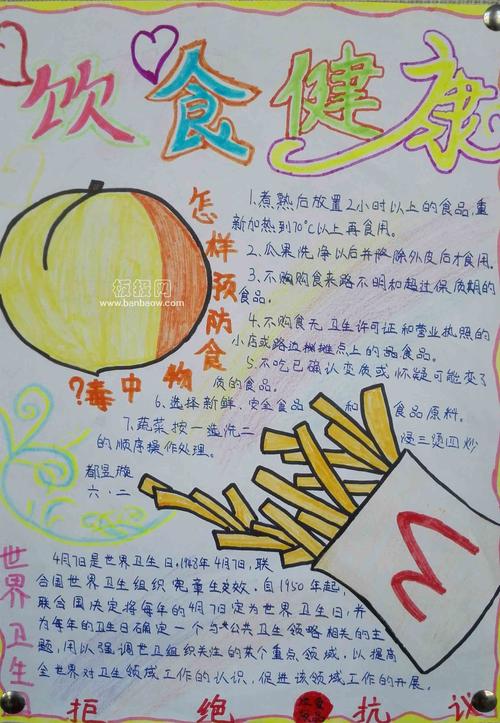 饮食健康
怎样预防食物中毒?
1.煮熟后放置2小时以上的食品,重
新加热到70℃以上再食用。
2.瓜果洗净以后并除外皮后才食用。
3.不购购食来路不明和超过保质期的
食品。
4.不购食无卫生许可证和营业执照的
小店或路边摊点上的品食品。
5.不吃已确认变质或怀疑可能变了
质的食品。
6.选择新鲜、安全食品 和 食品原料。
7.蔬菜按一选洗二 浸三烫四炒
的顺序操作处理。
六.二
板报网
www.banbaow.com
4月7日是世界卫生日,1948年4月7日,联
合国世界卫生组织宪章生效,自1950年起,
联合国决定将每年的4月7日定为世界卫生日,并
为每年的卫生日确定一个与公共卫生领略相关的主
题,用以强调世卫组织关性的某个重点领域,以提高
全世界对卫生领域工作的认识,促进该领域工作的开展。
世界卫生日
拒绝 抗议